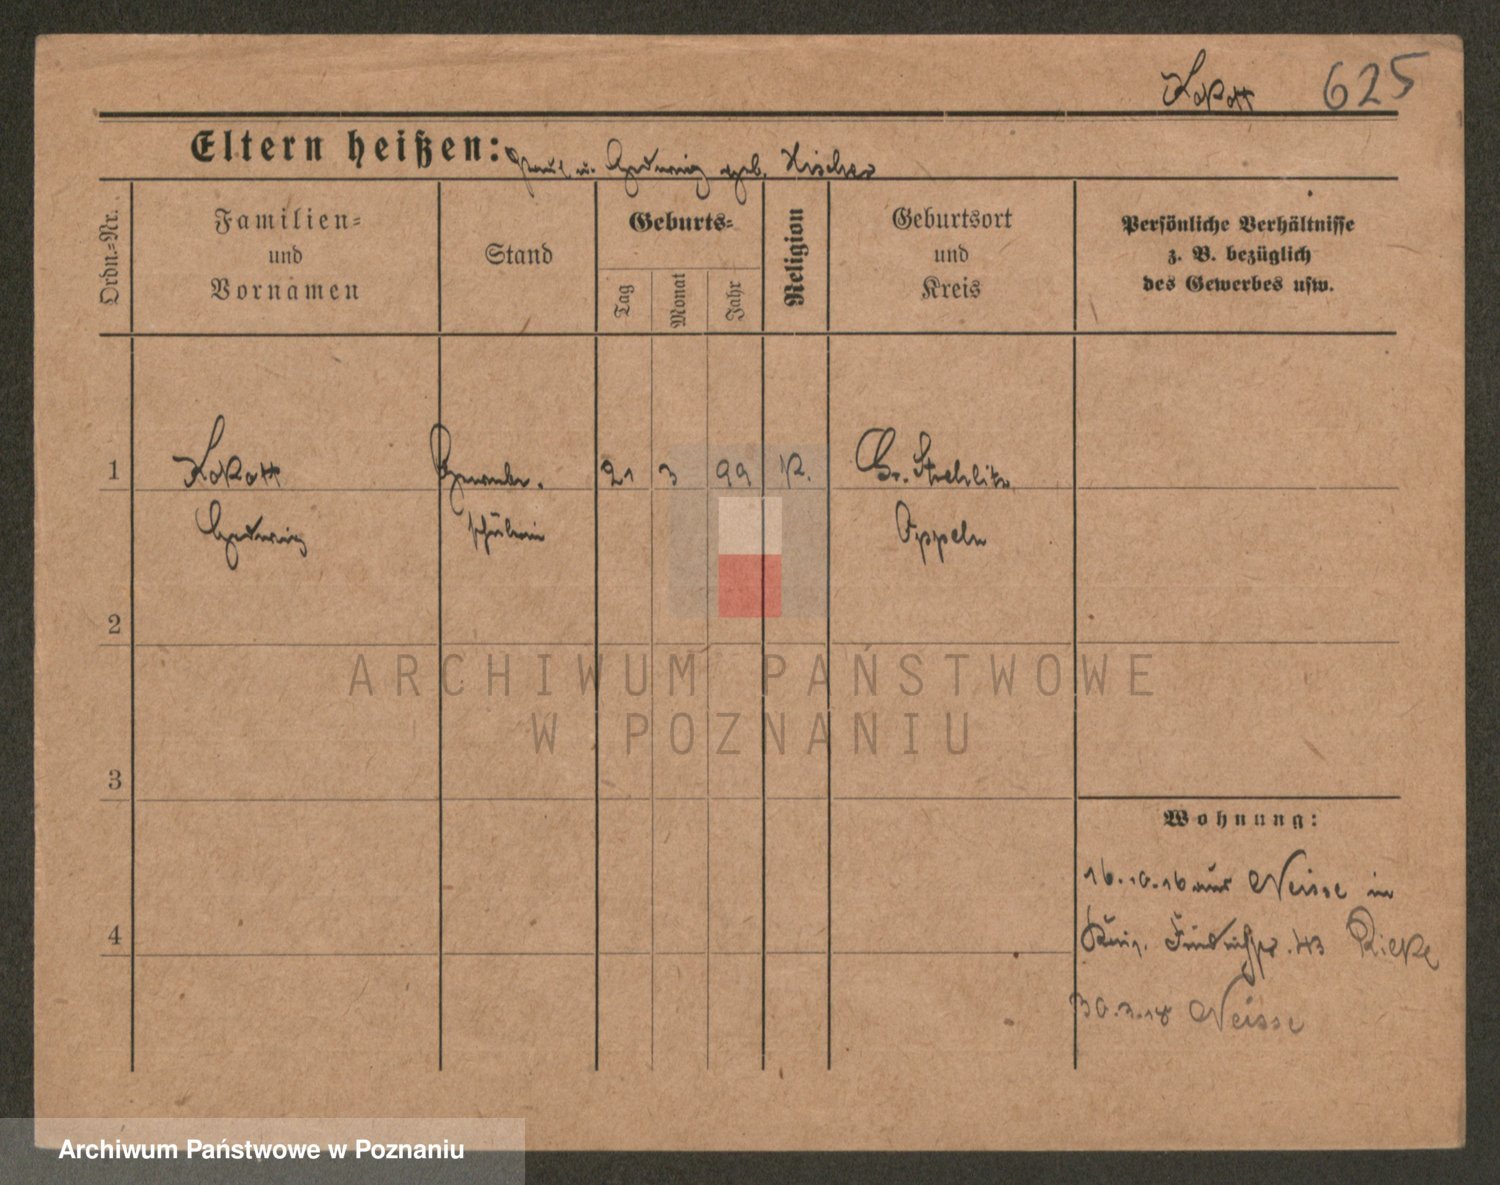 Kokott 625
Eltern heißen: Paul u. Hedwig geb. Kischer
Ordn.-Nr.
Familien-
und
Vornamen
Stand
Geburts-
Tag
Monat
Jahr
Religion
Geburtsort
und
Kreis
Persönliche Verhältnisse
z. B. bezüglich
des Gewerbes usw.
1 Kokott Gewerbe- 21 3 99 K. Gr. Strehlitz
Hedwig schülerin Oppeln
2
ARCHIWUM PAŃSTWOWE
W POZNANIU
3
Wohnung:
16.10.16 aus Neisse in
4
Friedrichstr. 43
30.3.18 Neisse
Archiwum Państwowe w Poznaniu